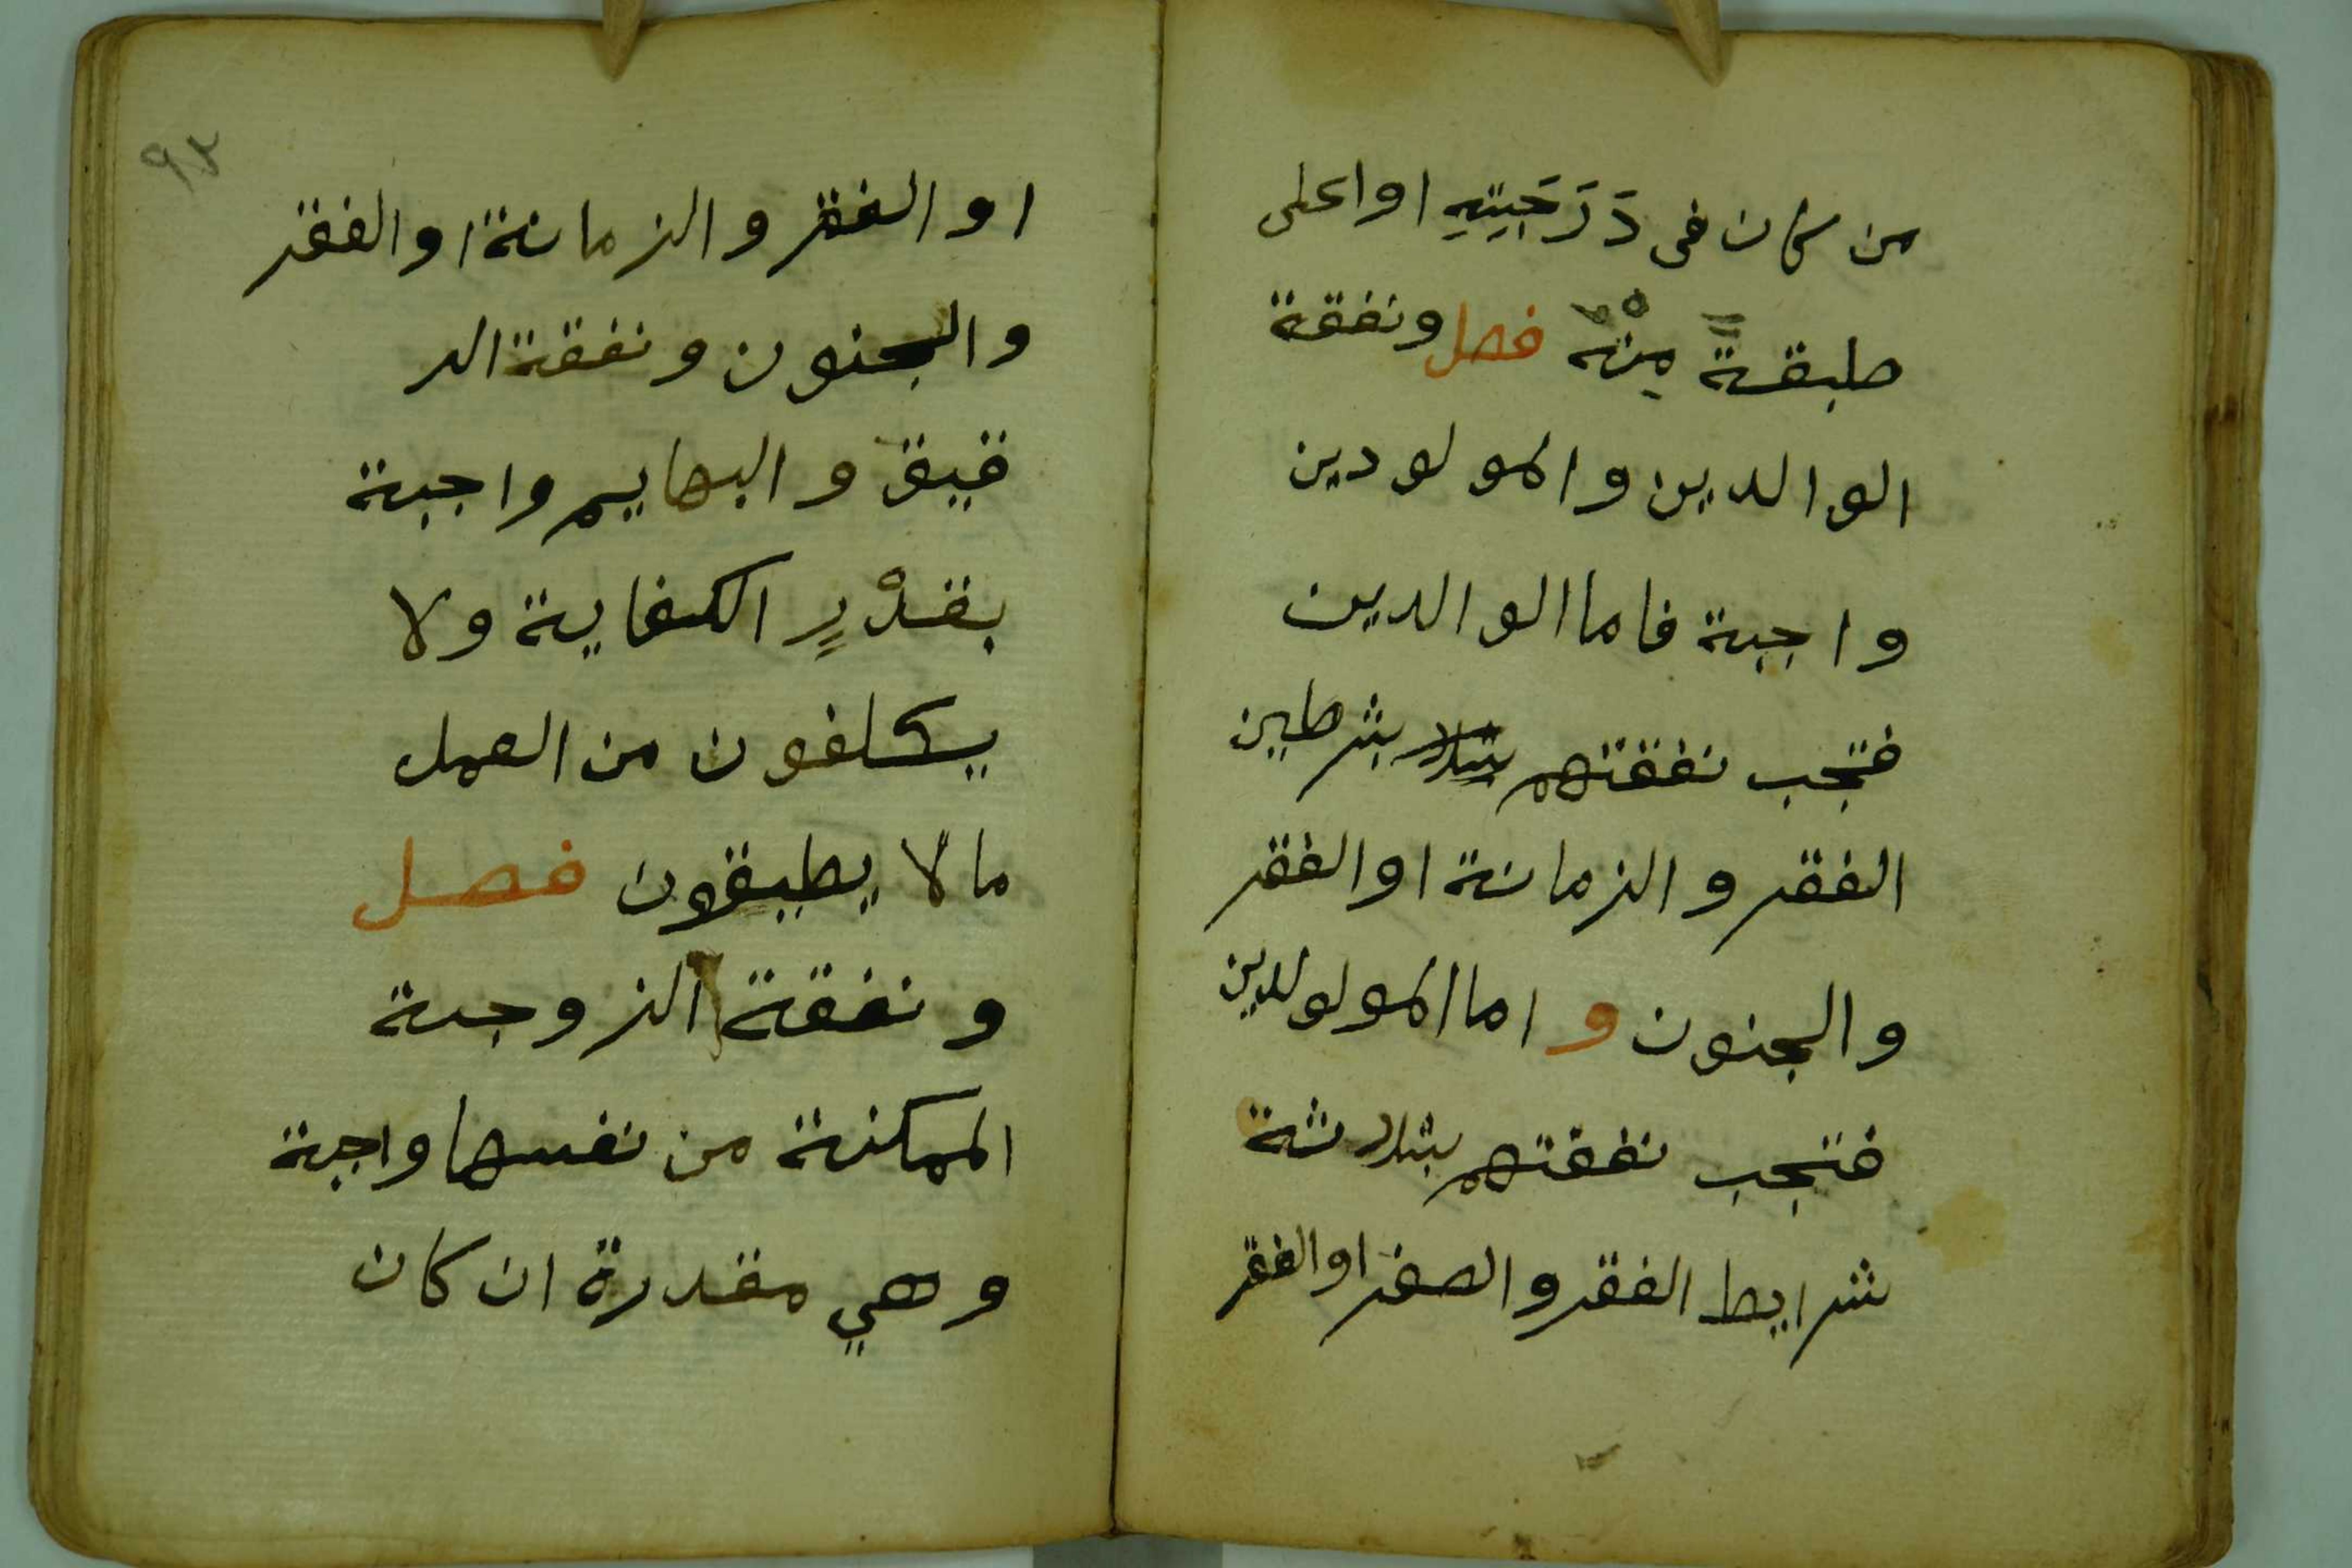 من كان فى دَرَجَتِهِ او اعلى
طبقةً مِنْهُ فصل ونفقة
الوالدين والمولودين
واجبة فاما الوالدين
فتجب نفقتهم بشرطين
الفقر والزمانة او الفقر
والجنون و اما المولولدين
فتجب نفقتهم بثلاثة
شرايط الفقر والصغر او الفقر
٩٣
او الفقر والزمانة او الفقر
والجنون ونفقة الر
قيق والبهايم واجبة
بقدْرٍ الكفاية ولا
يكلفون من العمل
مالا يطيقون فصل
ونفقة الزوجة
الممكنة من نفسها واجبة
وهي مقدرة ان كان